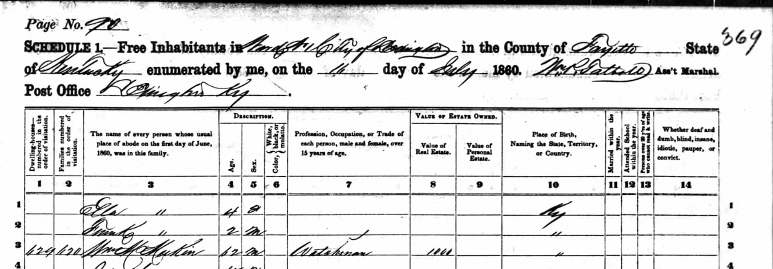 Page No. 90
369
SCHEDULE 1.—Free Inhabitants in Ward No 1 City of Lexington in the County of Fayette State
of Kentucky enumerated by me, on the 16 day of July 1860. Ass't Marshal.
Post Office Lexington Ky.
Dwelling-houses— numbered in the order of visitation.
Families numbered in the order of visitation.
The name of every person whose usual place of abode on the first day of June, 1860, was in this family.
DESCRIPTION.
Age.
Sex.
Color, White, black, or mulatto.
Profession, Occupation, or Trade of each person, male and female, over 15 years of age.
VALUE OF ESTATE OWNED.
Value of Real Estate.
Value of Personal Estate.
Place of Birth, Naming the State, Territory, or Country.
Married within the year.
Attended School within the year.
Persons over 20 y'rs of age who cannot read & write.
Whether deaf and dumb, blind, insane, idiotic, pauper, or convict.
1 2 3 4 5 6 7 8 9 10 11 12 13 14
1 Ella " 4 f Ky 1
2 Frank " 2 m " 2
3 629 620 Wm 62 m Watchman 1000 " 3
4 4